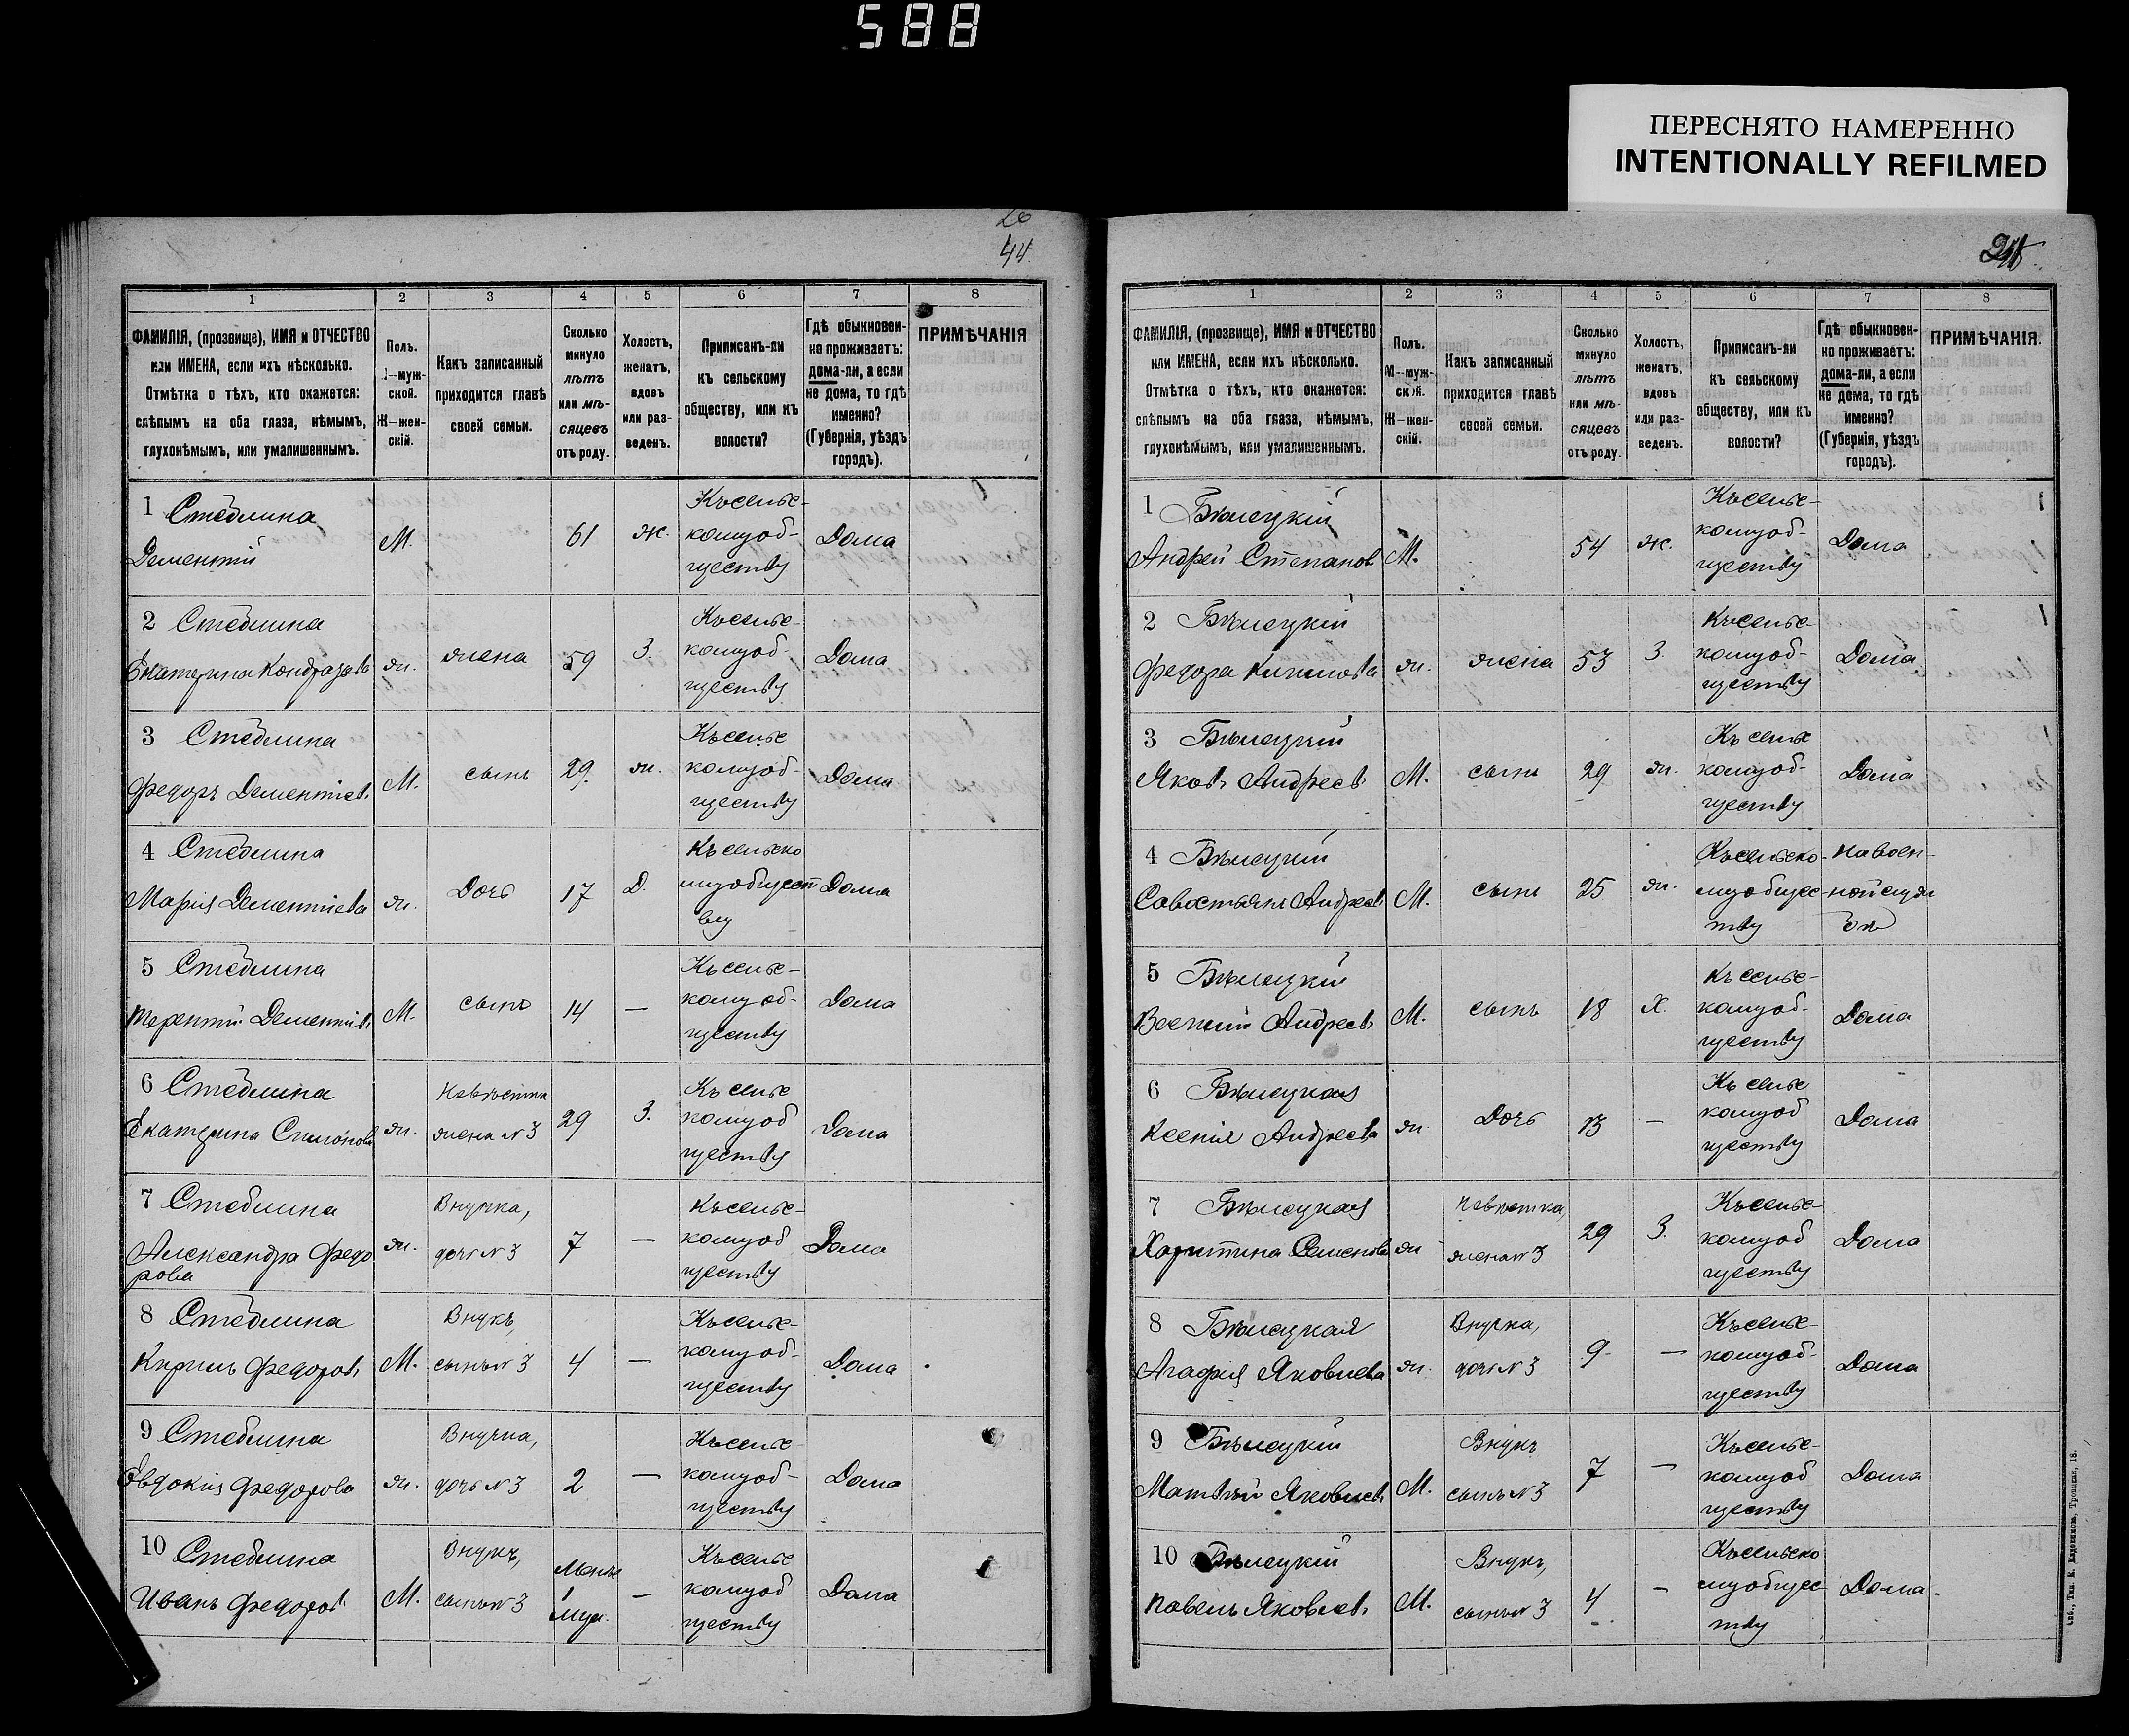 588
ПЕРЕСНЯТО НАМЕРЕННО
INTENTIONALLY REFILMED
44.
1 2 3 4 5 6 7 8
ФАМИЛІЯ, (прозвище), ИМЯ и ОТЧЕСТВО или ИМЕНА, если ихъ нѣсколько. Отмѣтка о тѣхъ, кто окажется: слѣпымъ на оба глаза, нѣмымъ, глухонѣмымъ, или умалишеннымъ.
Полъ. М—мужской. Ж—женскій.
Какъ записанный приходится главѣ своей семьи.
Сколько минуло лѣтъ или мѣсяцевъ отъ роду.
Холостъ, женатъ, вдовъ или разведенъ.
Приписанъ-ли къ сельскому обществу, или къ волости?
Гдѣ обыкновенно проживаетъ: дома-ли, а если не дома, то гдѣ именно? (Губернія, уѣздъ городъ).
ПРИМѢЧАНІЯ
1 Стеблина
Дементій М. 61 ж. Къ сельскому обществу Дома
2 Стеблина
Екатерина ж. жена 59 З. Къ сельскому обществу Дома
3 Стеблина
Федоръ Дементіевъ М. сынъ 29 ж. Къ сельскому обществу Дома
4 Стеблина
Марія Дементіева ж. Дочь 17 Д. Къ сельскому обществу Дома
5 Стеблина
Терентій Дементіевъ М. сынъ 14 — Къ сельскому обществу Дома
6 Стеблина
Екатерина ж. Невѣстка жена № 3 29 З. Къ сельскому обществу Дома
7 Стеблина
Александра Федорова ж. Внучка, дочь № 3 7 — Къ сельскому обществу Дома
8 Стеблина
Кирилъ Федоровъ М. Внукъ, сынъ № 3 4 — Къ сельскому обществу Дома
9 Стеблина
Евдокія Федорова ж. Внучка, дочь № 3 2 — Къ сельскому обществу Дома
10 Стеблина
Иванъ Федоровъ М. Внукъ, сынъ № 3 — Къ сельскому обществу Дома
1 2 3 4 5 6 7 8
ФАМИЛІЯ, (прозвище), ИМЯ и ОТЧЕСТВО или ИМЕНА, если ихъ нѣсколько. Отмѣтка о тѣхъ, кто окажется: слѣпымъ на оба глаза, нѣмымъ, глухонѣмымъ, или умалишеннымъ.
Полъ. М—мужской. Ж—женскій.
Какъ записанный приходится главѣ своей семьи.
Сколько минуло лѣтъ или мѣсяцевъ отъ роду.
Холостъ, женатъ, вдовъ или разведенъ.
Приписанъ-ли къ сельскому обществу, или къ волости?
Гдѣ обыкновенно проживаетъ: дома-ли, а если не дома, то гдѣ именно? (Губернія, уѣздъ городъ).
ПРИМѢЧАНІЯ.
1 Бѣлецкій
Андрей Степановъ М. 54 ж. Къ сельскому обществу Дома
2 Бѣлецкій
Федора ж. жена 53 З. Къ сельскому обществу Дома
3 Бѣлецкій
Яковъ Андреевъ М. сынъ 29 ж. Къ сельскому обществу Дома
4 Бѣлецкій
Савостьянъ Андреевъ М. сынъ 25 ж. Къ сельскому обществу На военной службѣ
5 Бѣлецкій
Андреевъ М. сынъ 18 Х. Къ сельскому обществу Дома
6 Бѣлецкая
Ксенія Андреева ж. Дочь 13 — Къ сельскому обществу Дома
7 Бѣлецкая
Харитина Семенова ж. Невѣстка, жена № 3 29 З. Къ сельскому обществу Дома
8 Бѣлецкая
Агафія Яковлева ж. Внучка, дочь № 3 9 — Къ сельскому обществу Дома
9 Бѣлецкій
Матвѣй Яковлевъ М. Внукъ сынъ № 3 7 — Къ сельскому обществу Дома
10 Бѣлецкій
Павелъ Яковлевъ М. Внукъ, сынъ № 3 4 — Къ сельскому обществу Дома